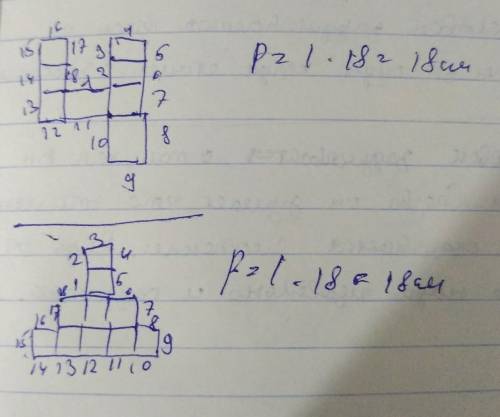 16
4
15 17 3 5
P = 1 · 18 = 18 см
14 18 1 2 6
13 7
12 11 10 8
9
3
2 4
P = 1 · 18 = 18 см
1 5
18 6
17 7
16 8
15 9
14 13 12 11 10